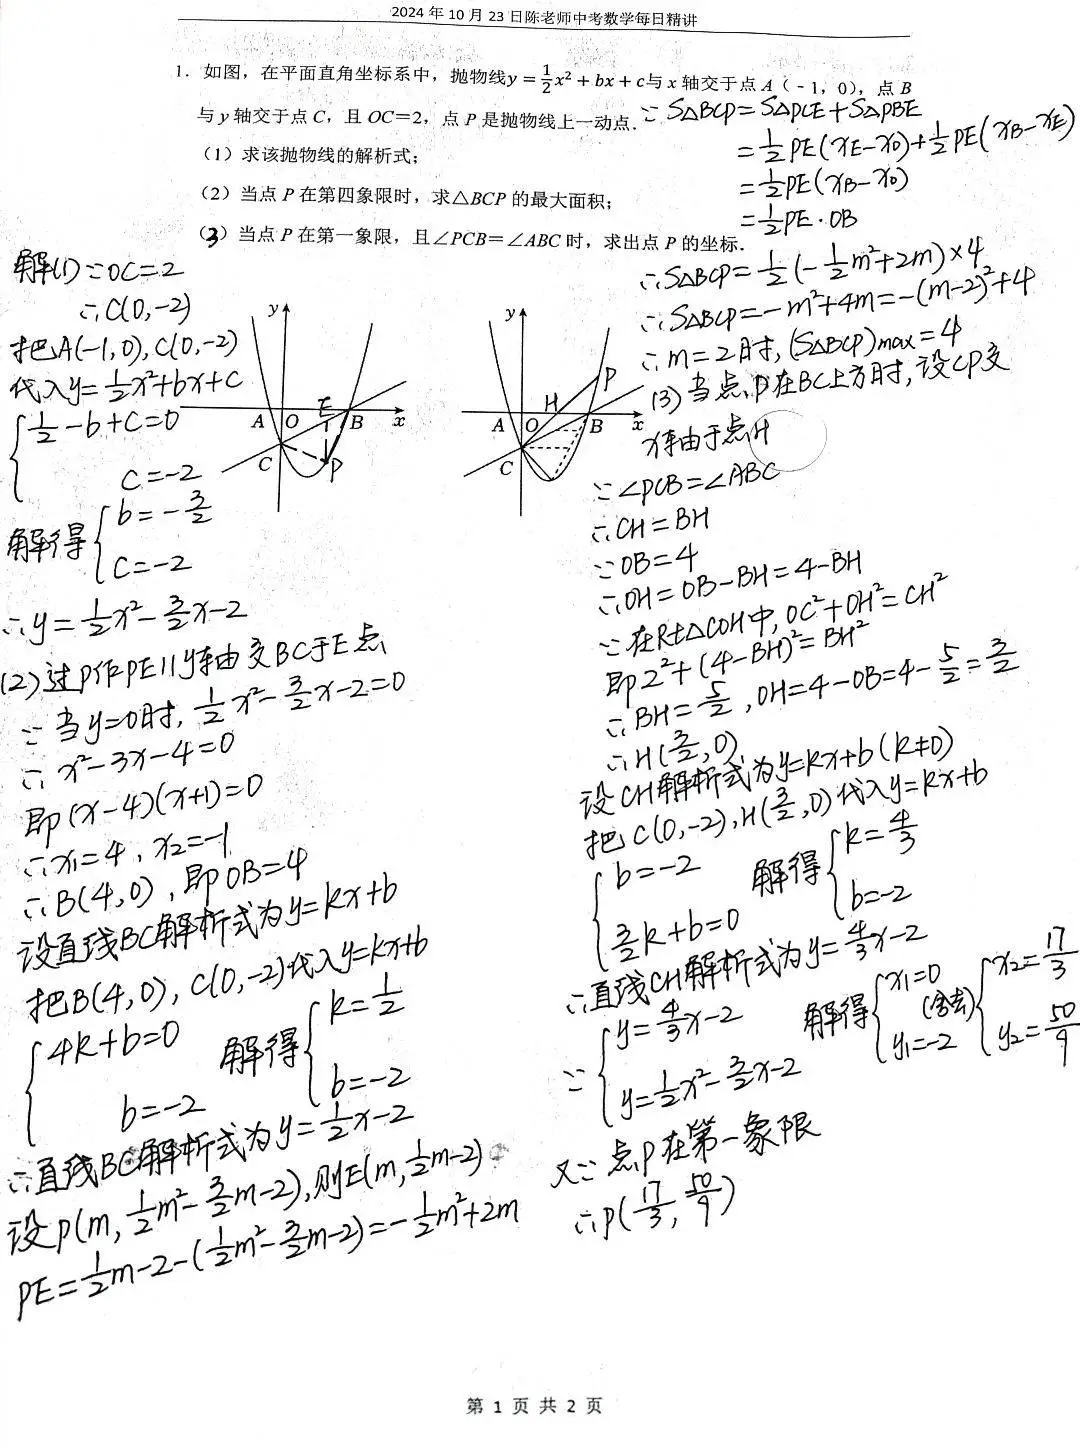 2024年10月23日陈老师中考数学每日精讲
1. 如图，在平面直角坐标系中，抛物线y＝1/2x²＋bx＋c与x轴交于点A（－1，0），点B
与y轴交于点C，且OC＝2，点P是抛物线上一动点．
（1）求该抛物线的解析式；
（2）当点P在第四象限时，求△BCP的最大面积；
（3）当点P在第一象限，且∠PCB＝∠ABC时，求出点P的坐标．
解(1)∵OC=2
∴C(0,-2)
把A(-1,0),C(0,-2)
代入y=1/2x²+bx+c
{1/2-b+c=0
c=-2
解得{b=-3/2
c=-2
∴y=1/2x²-3/2x-2
(2)过P作PE∥y轴交BC于E点
∵当y=0时,1/2x²-3/2x-2=0
∴x²-3x-4=0
即(x-4)(x+1)=0
∴x₁=4,x₂=-1
∴B(4,0),即OB=4
设直线BC解析式为y=kx+b
把B(4,0),C(0,-2)代入y=kx+b
{4k+b=0
b=-2
解得{k=1/2
b=-2
∴直线BC解析式为y=1/2x-2
设P(m,1/2m²-3/2m-2),则E(m,1/2m-2)
PE=1/2m-2-(1/2m²-3/2m-2)=-1/2m²+2m
y
A
O
E
B
x
C
P
y
P
H
A
O
B
x
C
∵S△BCP=S△PCE+S△PBE
=1/2PE(xE-x0)+1/2PE(xB-xE)
=1/2PE(xB-x0)
=1/2PE·OB
∴S△BCP=1/2(-1/2m²+2m)×4
∴S△BCP=-m²+4m=-(m-2)²+4
∴m=2时,(S△BCP)max=4
(3)当点P在BC上方时,设CP交
x轴于点H
∵∠PCB=∠ABC
∴CH=BH
∵OB=4
∴OH=OB-BH=4-BH
∵在Rt△COH中,OC²+OH²=CH²
即2²+(4-BH)²=BH²
∴BH=5/2,OH=4-OB=4-5/2=3/2
∴H(3/2,0)
设CH解析式为y=kx+b(k≠0)
把C(0,-2),H(3/2,0)代入y=kx+b
{b=-2
3/2k+b=0
解得{k=4/3
b=-2
∴直线CH解析式为y=4/3x-2
∵{y=4/3x-2
y=1/2x²-3/2x-2
解得{x₁=0
y₁=-2
(舍去)
{x₂=17/3
y₂=50/9
又∵点P在第一象限
∴P(17/3,50/9)
第1页共2页